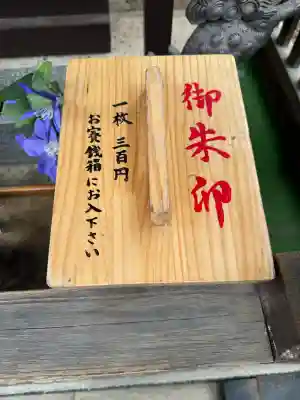 御朱印
一枚 三百円
お賽銭箱にお入下さい